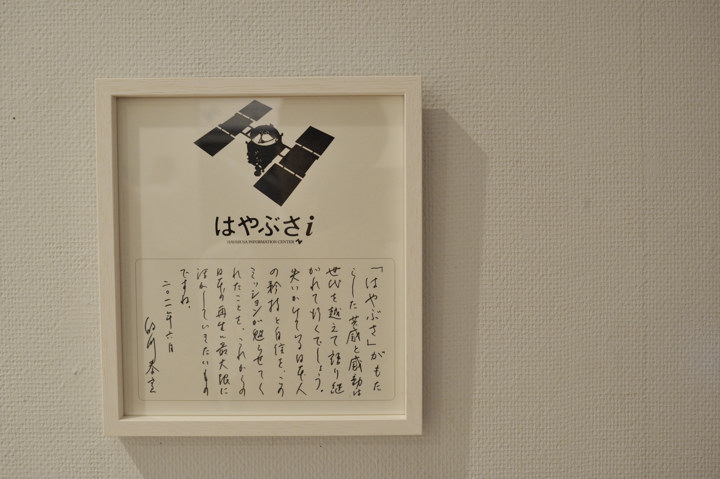 はやぶさi
HAYABUSA INFORMATION CENTER
「はやぶさ」がもた
らした英感と感動は
世代を越えて語り継
がれて行くでしょう。
失いかけている日本人
の矜持と自信を、この
ミッションが甦らせてく
れたことを、これからの
日本の再生へ最大限に
活かしていきたいもの
ですね。
二〇一一年六月